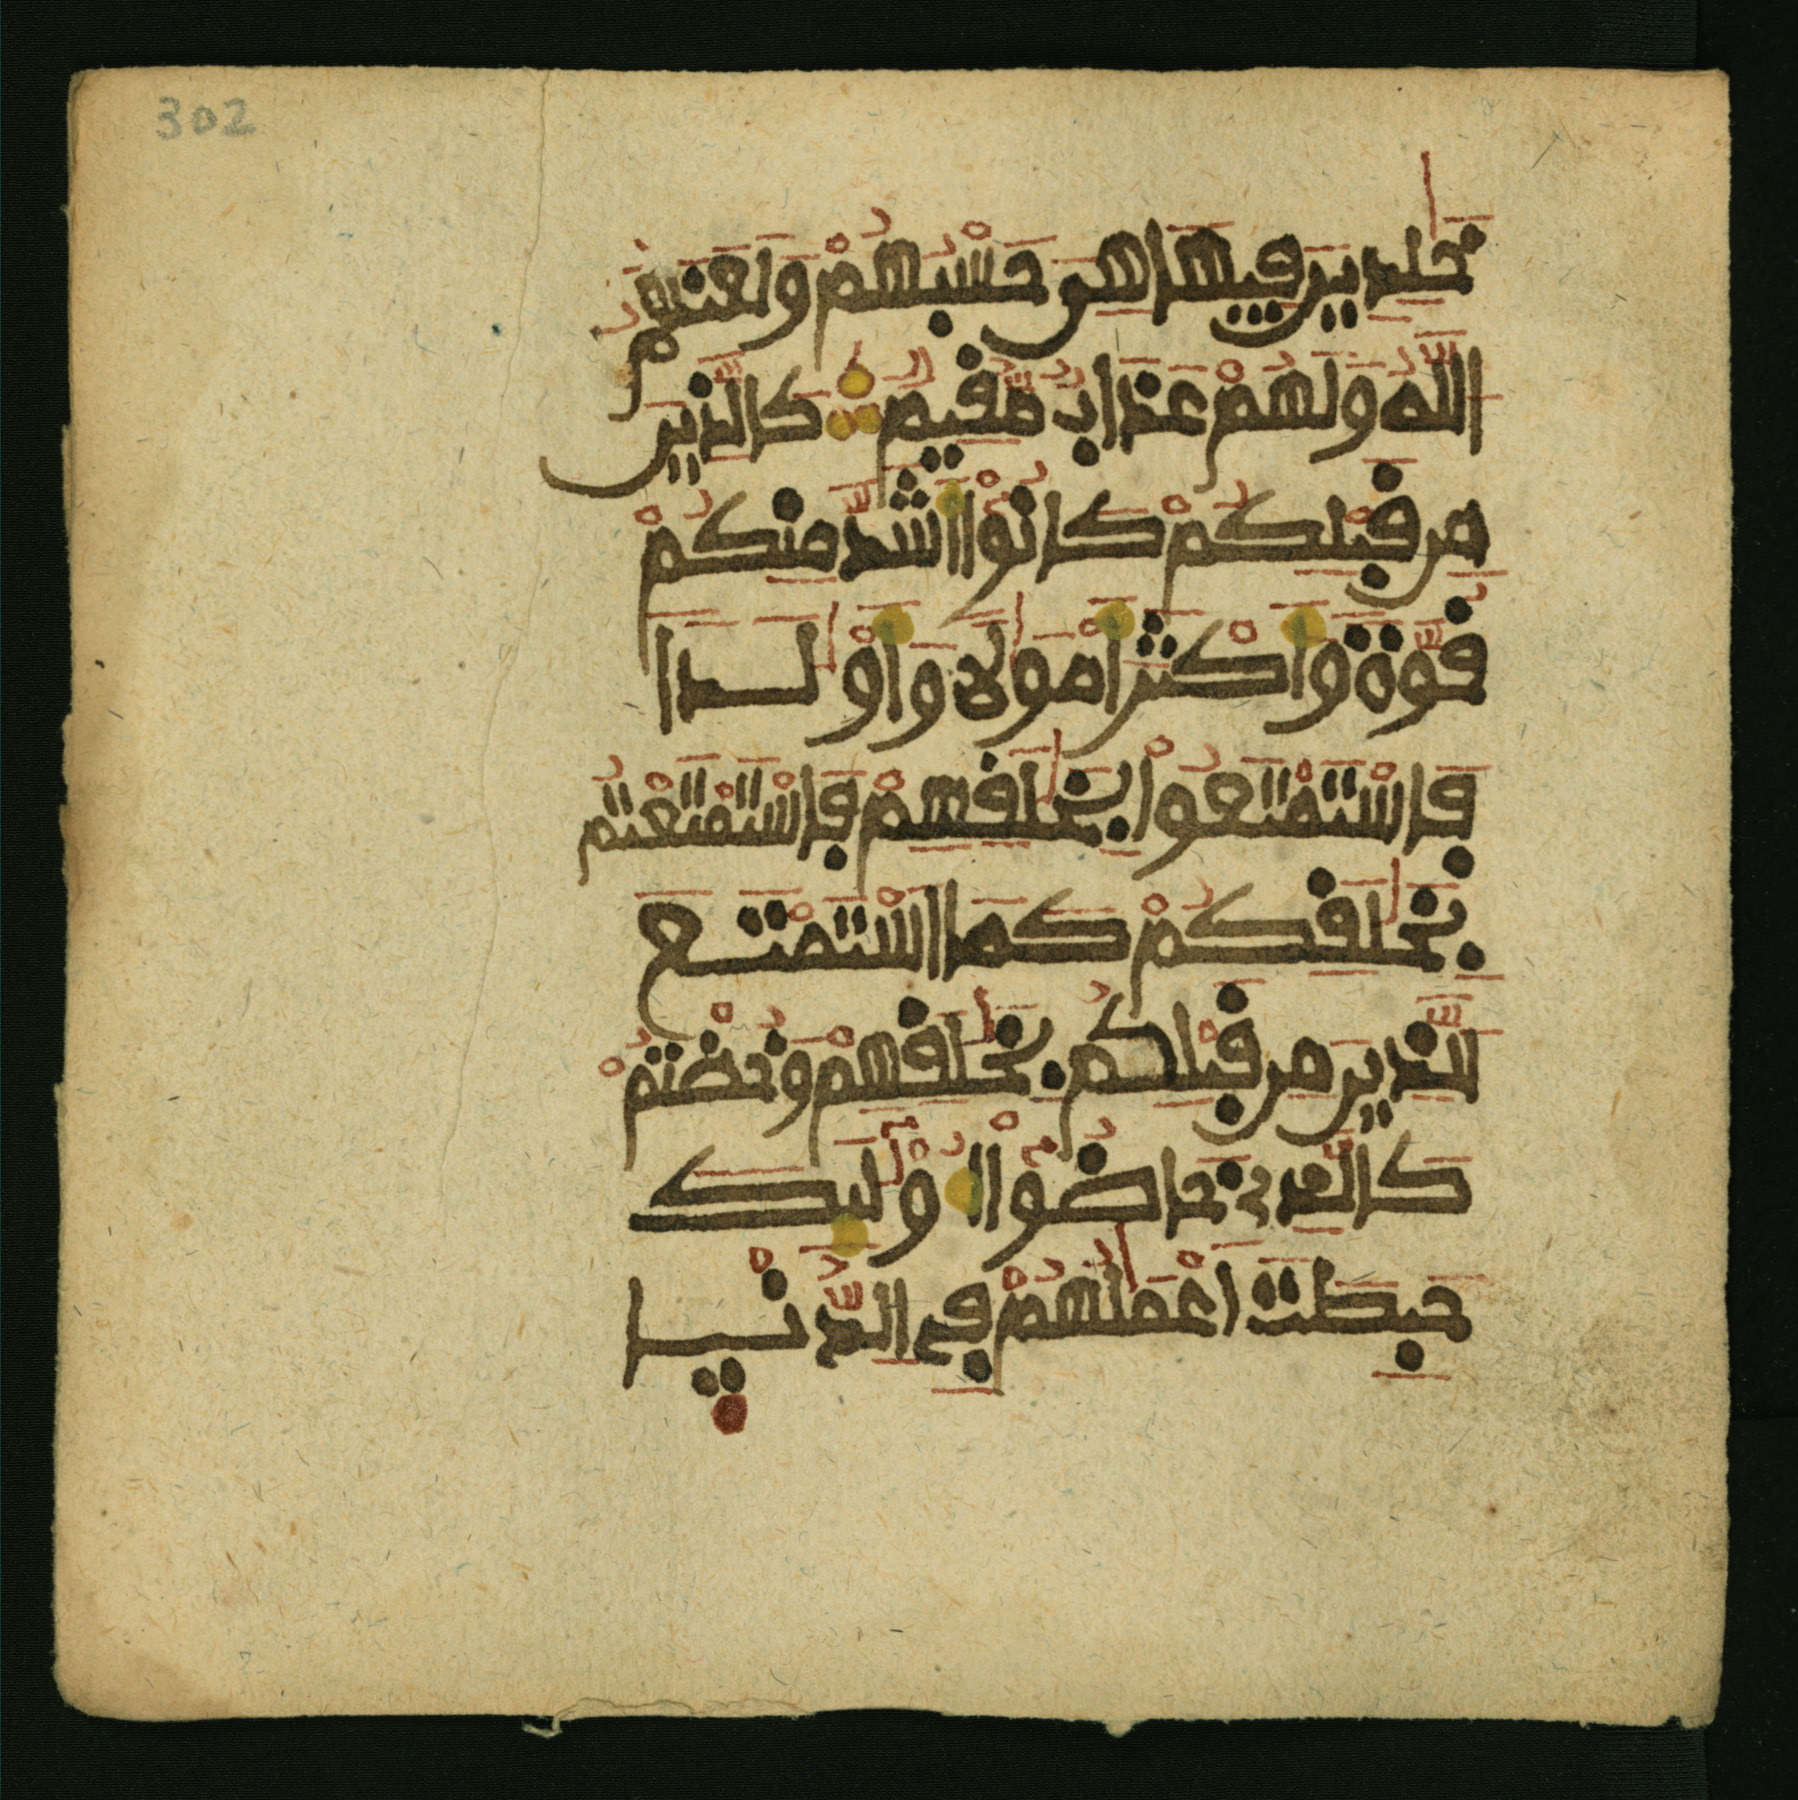 302
خَٰلِدِينَ فِيهَا هِيَ حَسْبُهُمْ وَلَعَنَهُمُ
اللَّهُ وَلَهُمْ عَذَابٌ مُّقِيمٌ كَالَّذِينَ
مِن قَبْلِكُمْ كَانُوْا أَشَدَّ مِنكُمْ
قُوَّةً وَأَكْثَرَ أَمْوَٰلًا وَأَوْلَٰدًا
فَاسْتَمْتَعُوا بِخَلَٰقِهِمْ فَاسْتَمْتَعْتُم
بِخَلَٰقِكُمْ كَمَا اسْتَمْتَعَ
الَّذِينَ مِن قَبْلِكُم بِخَلَٰقِهِمْ وَخُضْتُمْ
كَالَّذِي خَاضُوْا أُوْلَٰئِكَ
حَبِطَتْ أَعْمَٰلُهُمْ فِي الدُّنْيَا